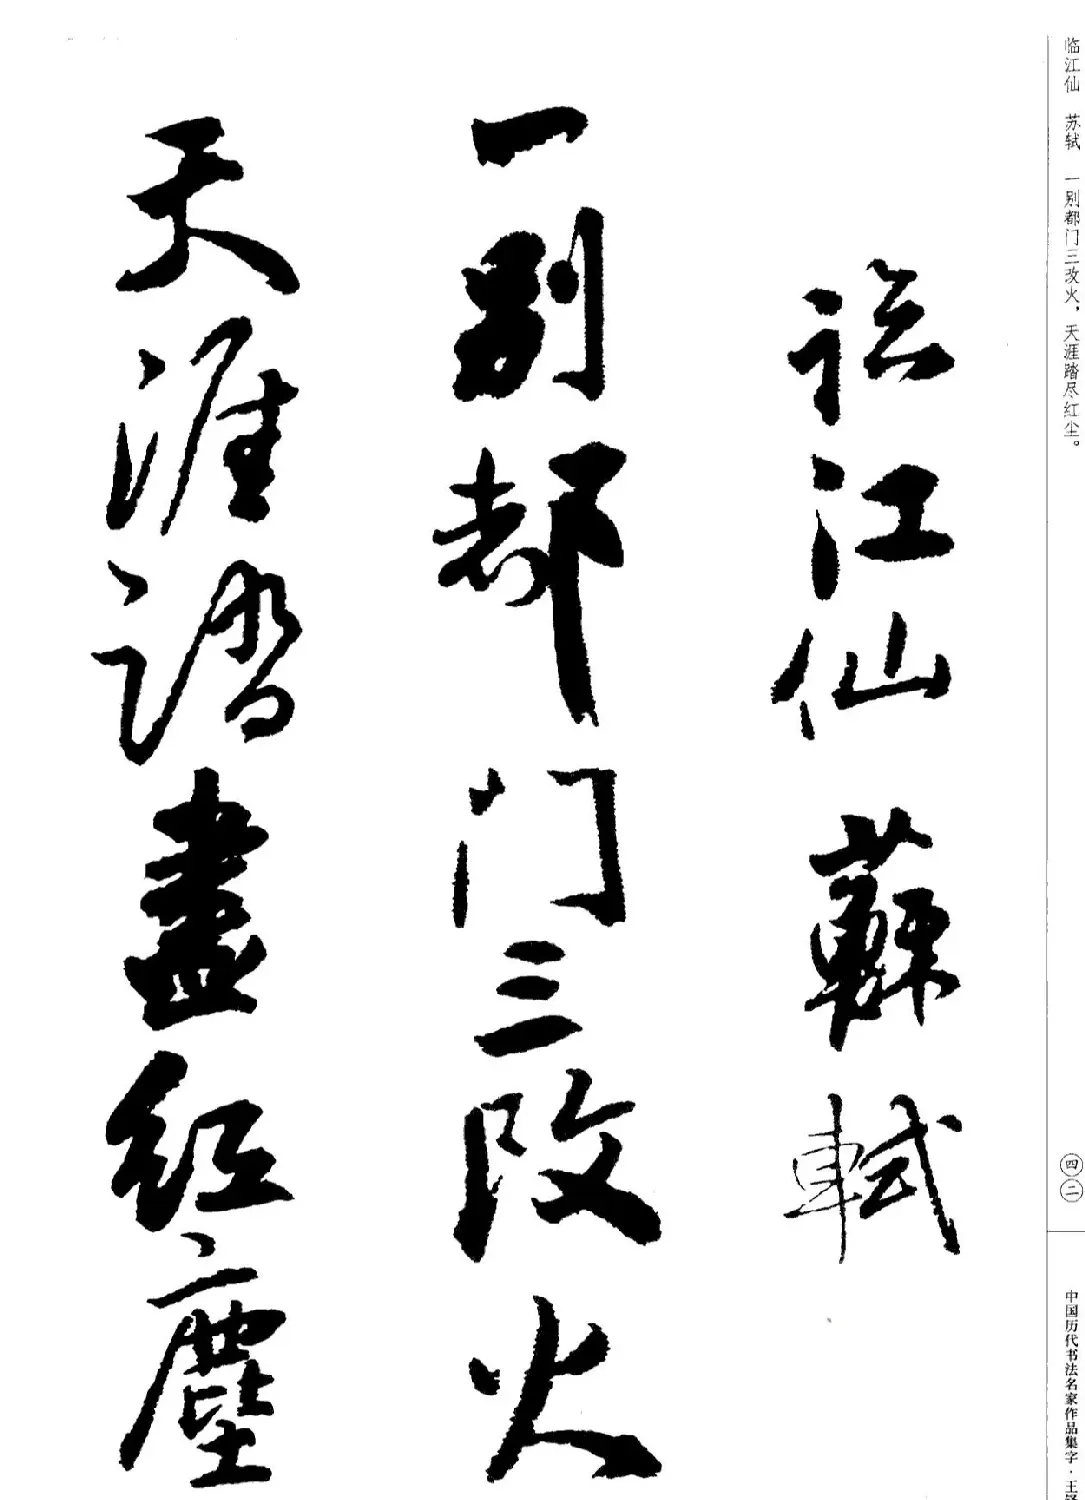 临江仙 苏轼 一别都门三改火，天涯踏尽红尘。
臨江仙 蘇軾
一別都门三改火
天涯踏盡紅塵
四二
中国历代书法名家作品集字·王